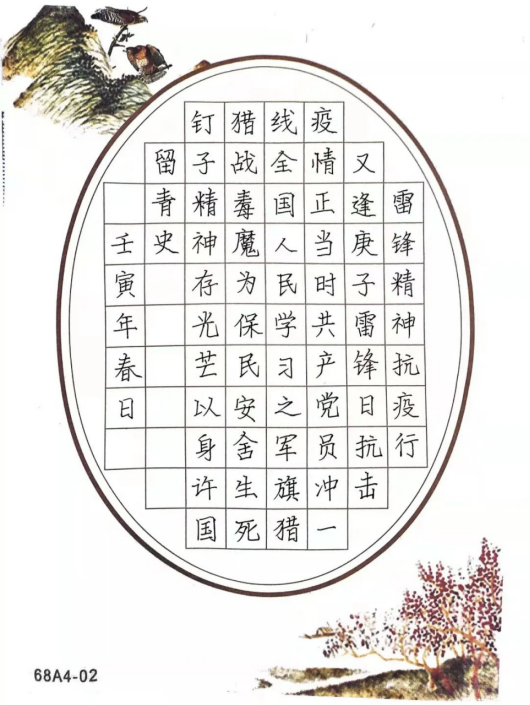 雷锋精神抗疫行
又逢庚子雷锋日抗击
疫情正当时共产党员冲一
线全国人民学习之军旗猎
猎战毒魔为保民安舍生死
钉子精神存光芒以身许国
留青史
壬寅年春日
68A4-02